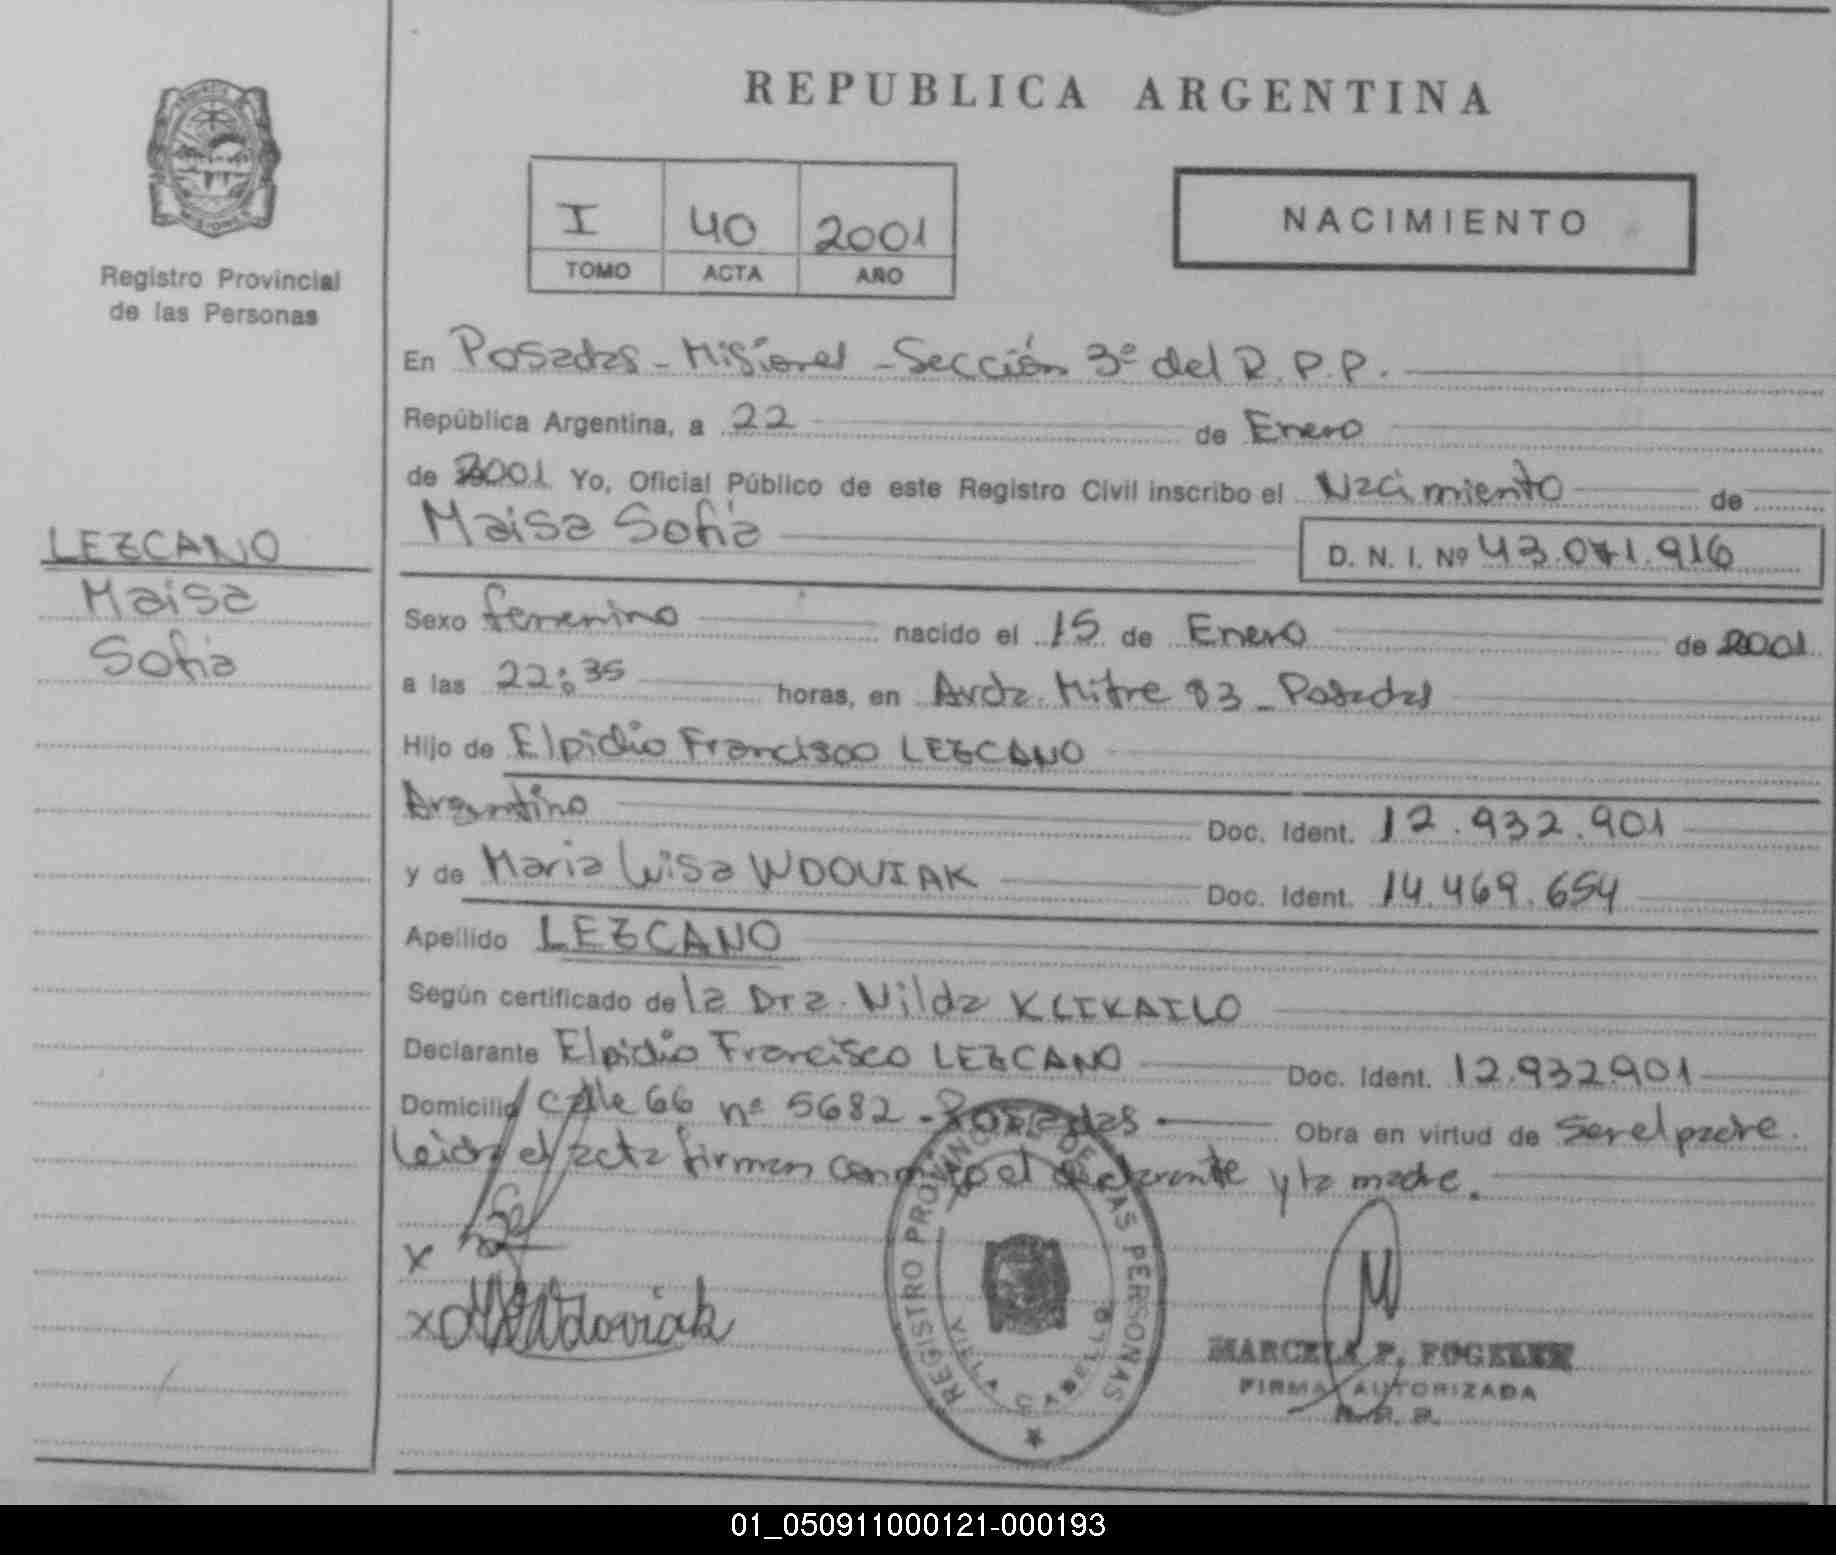 REPUBLICA ARGENTINA
Registro Provincial
de las Personas
I 40 2001
TOMO ACTA AÑO
NACIMIENTO
LEZCANO
Maisa
Sofia
En Posadas - Misiones - Sección 3º del R.P.P.
República Argentina, a 22 de Enero
de 2001 Yo, Oficial Público de este Registro Civil inscribo el Nacimiento de
Maisa Sofia D. N. I. Nº 43.071.916
Sexo femenino nacido el 15 de Enero de 2001
a las 22:35 horas, en Avda. Mitre 83 - Posadas
Hijo de Elpidio Francisco LEZCANO
Argentino Doc. Ident. 12.932.901
y de Maria Luisa WDOVIAK Doc. Ident. 14.469.654
Apellido LEZCANO
Según certificado de la Dra. Nilda KLIKAILO
Declarante Elpidio Francisco LEZCANO Doc. Ident. 12.932.901
Domicilio calle 66 nº 5682 - Posadas Obra en virtud de Ser el padre.
Leida el acta firman conmigo el declarante y la madre.
x
x Wdoviak
REGISTRO PROVINCIAL DE LAS PERSONAS
VILLA CABELLO
MARCELA P.
FIRMA AUTORIZADA
R. P. P.
01_050911000121-000193